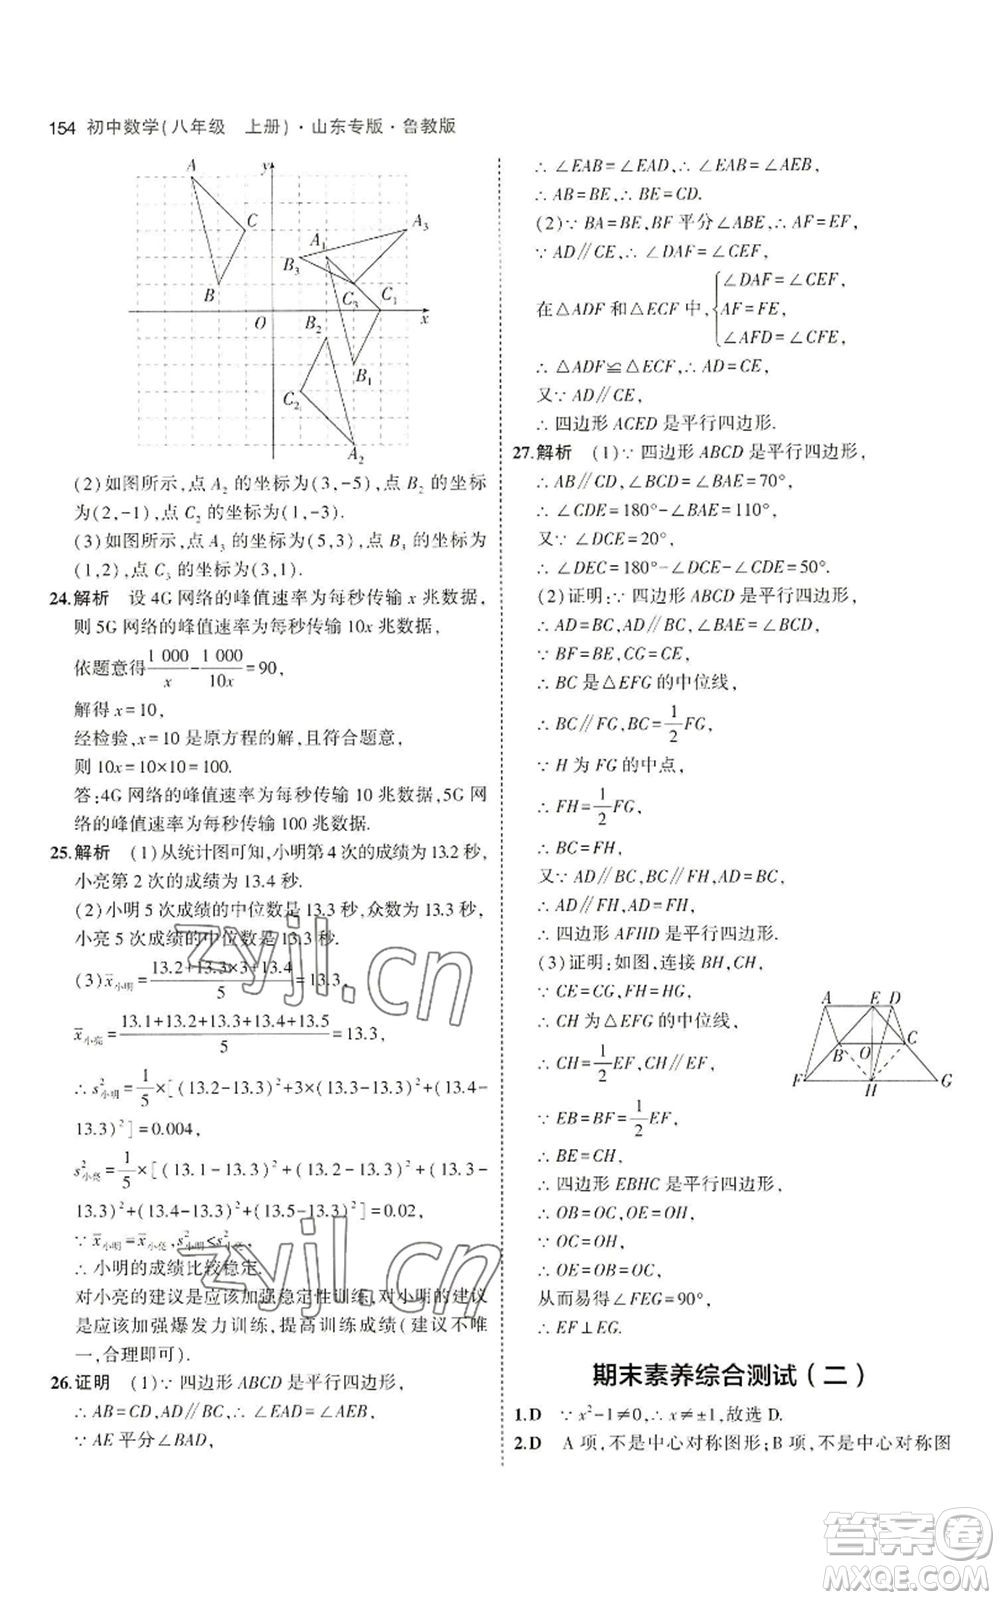 154 初中数学(八年级 上册)·山东专版·鲁教版
A
y
C
A₁
A₃
B₃
B
C₃
C₁
O
B₂
x
B₁
C₂
A₂
(2)如图所示,点 A₂ 的坐标为(3,-5),点 B₂ 的坐标
为(2,-1),点 C₂ 的坐标为(1,-3).
(3)如图所示,点 A₃ 的坐标为(5,3),点 B₃ 的坐标为
(1,2),点 C₃ 的坐标为(3,1).
24.解析 设 4G 网络的峰值速率为每秒传输 x 兆数据,
则 5G 网络的峰值速率为每秒传输 10x 兆数据,
依题意得 1 000/x - 1 000/10x = 90,
解得 x=10,
经检验,x=10 是原方程的解,且符合题意,
则 10x=10×10=100.
答:4G 网络的峰值速率为每秒传输 10 兆数据,5G 网
络的峰值速率为每秒传输 100 兆数据.
25.解析 (1)从统计图可知,小明第 4 次的成绩为 13.2 秒,
小亮第 2 次的成绩为 13.4 秒.
(2)小明 5 次成绩的中位数是 13.3 秒,众数为 13.3 秒,
小亮 5 次成绩的中位数是 13.3 秒.
(3) x̄小明 = (13.2+13.3×3+13.4)/5 = 13.3,
x̄小亮 = (13.1+13.2+13.3+13.4+13.5)/5 = 13.3,
∴ s²小明 = 1/5 ×[(13.2-13.3)²+(13.3-13.3)²+(13.4-
13.3)²]=0.004,
s²小亮 = 1/5 ×[(13.1-13.3)²+(13.2-13.3)²+(13.3-
13.3)²+(13.4-13.3)²+(13.5-13.3)²]=0.02,
∵ x̄小明 = x̄小亮, s²小明 < s²小亮,
∴ 小明的成绩比较稳定.
对小亮的建议是应该加强稳定性训练,对小明的建议
是应该加强爆发力训练,提高训练成绩(建议不唯
一,合理即可).
26.证明 (1)∵ 四边形 ABCD 是平行四边形,
∴ AB=CD,AD∥BC,∴ ∠EAD=∠AEB,
∵ AE 平分∠BAD,
∴ ∠EAB=∠EAD,∴ ∠EAB=∠AEB,
∴ AB=BE,∴ BE=CD.
(2)∵ BA=BE,BF 平分∠ABE,∴ AF=EF,
∵ AD∥CE,∴ ∠DAF=∠CEF,
在△ADF 和△ECF 中, { ∠DAF=∠CEF,
AF=FE,
∠AFD=∠CFE,
∴ △ADF≌△ECF,∴ AD=CE,
又∵ AD∥CE,
∴ 四边形 ACED 是平行四边形.
27.解析 (1)∵ 四边形 ABCD 是平行四边形,
∴ AB∥CD,∠BAE=70°,
∴ ∠CDE=180°-∠BAE=110°,
又∵ ∠DCE=20°,
∴ ∠DEC=180°-∠DCE-∠CDE=50°.
(2)证明:∵ 四边形 ABCD 是平行四边形,
∴ AD=BC,AD∥BC,∠BAE=∠BCD,
∵ BF=BE,CG=CE,
∴ BC 是△EFG 的中位线,
∴ BC∥FG,BC=1/2 FG,
∵ H 为 FG 的中点,
∴ FH=1/2 FG,
∴ BC=FH,
又∵ AD∥BC,AD=BC,∴ AD∥FH,AD=FH,
∴ AD∥FH,AD=FH,
∴ 四边形 AFHD 是平行四边形.
(3)证明:如图,连接 BH,CH,
∵ CE=CG,FH=HG,
∴ CH 为△EFG 的中位线,
∴ CH=1/2 EF,CH∥EF,
∵ EB=BF=1/2 EF,
∴ BE=CH,
∴ 四边形 EBHC 是平行四边形,
∴ OB=OC,OE=OH,
∵ OC=OH,
∴ OE=OB=OC,
从而易得∠FEG=90°,
∴ EF⊥EG.
A
E
D
B
O
C
F
H
G
期末素养综合测试(二)
1.D ∵ x²-1≠0,∴ x≠±1,故选 D.
2.D A 项,不是中心对称图形;B 项,不是中心对称图
zyjl.cn
zyjl.cn
答案圈
MXQE.COM